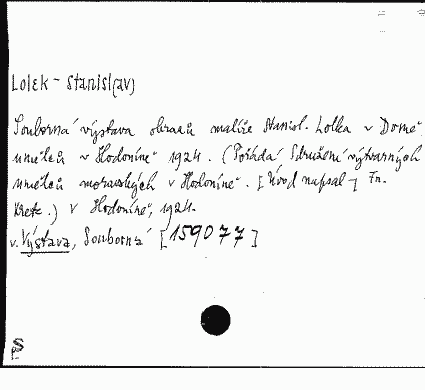 Lolek - Stanisl(av)
Souborná výstava obrazů malíře Stanisl. Lolka v Domě
umělců v Hodoníně 1924. (Pořádá Sdružení výtvarných
umělců moravských v Hodoníně. [Úvod napsal] Fr.
Kretz.) V Hodoníně, 1924.
v. Výstava, Souborná [159077]
S